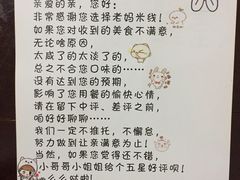 亲爱的亲，您好：
非常感谢您选择老妈米线！
如果您对收到的美食不满意，
无论啥原因，
太咸了的太淡了的，
总之不合您口味的……
没有达到您的预期，
影响了您用餐的愉快心情，
请在留下中评、差评之前，
咱好好聊聊……
我们一定不推托，不懈怠，
努力做到让亲满意为止！
当然，如果您觉得还不错，
小哥哥小姐姐给个五星好评呗！
么么哒啦！